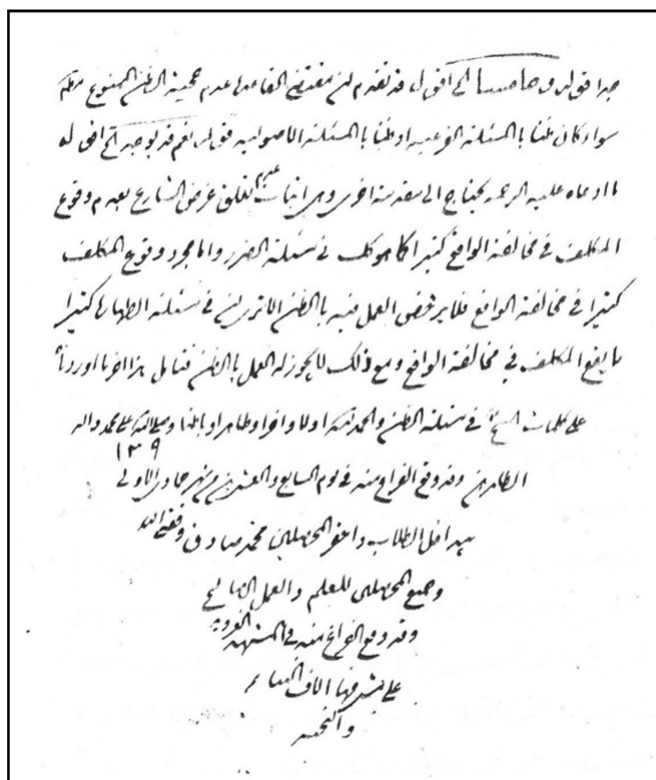 جدا قوله وهاهنا الى اقول قد تقدم ان مقتضى القاعدة عدم حجية الظن الممنوع مطلقا
سواء كان ظنا بالمسئلة الفرعية او ظنا بالمسئلة الاصولية قوله نعم قد يوجد الخ اقول
ما ادعاه عليه الرحمة يحتاج الى مقدمة اخرى وهى اثبات تعلق غرض الشارع بعدم وقوع
المكلف فى مخالفة الواقع كثيرا كما هو كك فى مسئلة الضرر واما مجرد وقوع المكلف
كثيرا فى مخالفة الواقع فلا يرخص العمل فيه بالظن الا ترى ان فى مسئلة الطهارة كثيرا
ما يقع المكلف في مخالفة الواقع ومع ذلك لا يجوز له العمل بالظن فتامل هذا اخر ما اوردنا
على كلمات الشيخ فى مسئلة الظن والحمد لله اولا واخرا وظاهرا وباطنا وصلى الله على محمد واله
الطاهرين وقد وقع الفراغ منه فى يوم السابع والعشرين من شهر جمادى الاولى
١٣٩
بيد اقل الطلاب واحقر المحصلين محمد صادق وفقه الله
وجميع المحصلين للعلم والعمل الصالح
وقد وقع الفراغ منه فى المشهد الغروية
على مشرفها الاف الثناء
والتحية